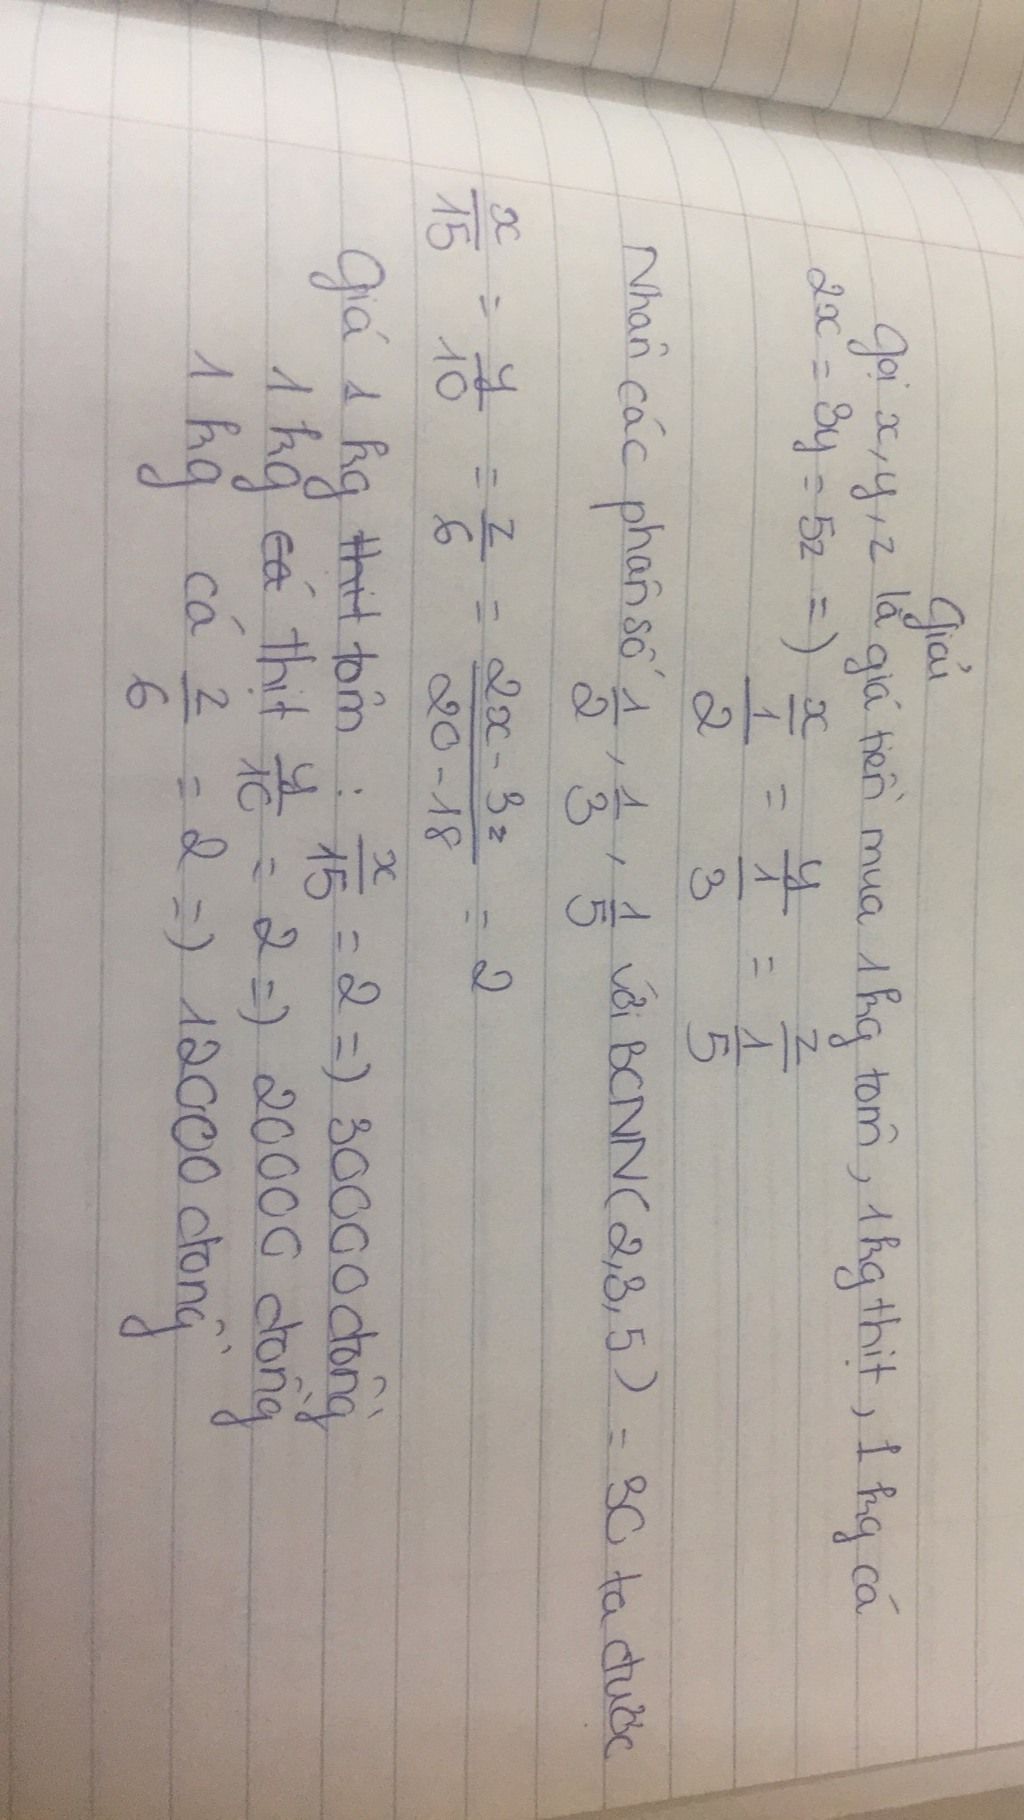 Giải
Gọi x, y, z là giá tiền mua 1 kg tôm, 1 kg thịt, 1 kg cá
2x = 3y = 5z => x/(1/2) = y/(1/3) = z/(1/5)
Nhân các phân số 1/2, 1/3, 1/5 với BCNN(2,3,5) = 30 ta được
x/15 = y/10 = z/6 = (2x - 3z)/(20 - 18) = 2
Giá 1 kg thịt tôm : x/15 = 2 => 30000 đồng
1 kg cá thịt y/10 = 2 => 20000 đồng
1 kg cá z/6 = 2 => 12000 đồng